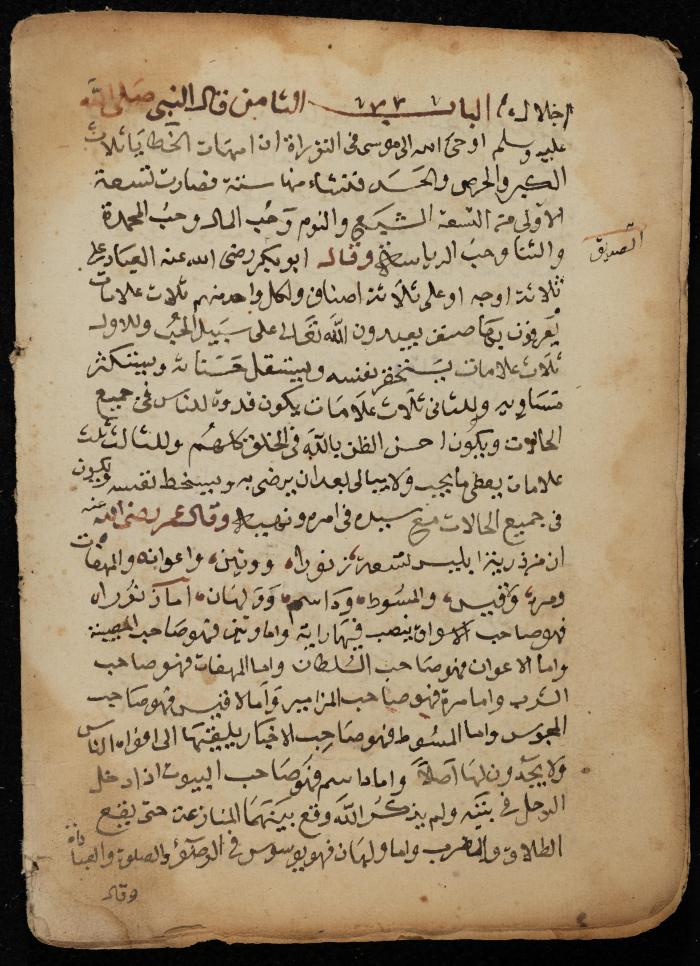 إجلال الباب الثامن قال النبي صلى الله
عليه وسلم اوحى الله الى موسى فى التوراة ان امهات الخطايا ثلاث
الكبر والحرص والحسد فتنشاء منها ستة فصارت تسعة
الاولى من الستة الشبع والنوم وحب المال وحب المحمدة
والثنا وحب الرياسة وقال ابو بكر رضى الله عنه العباد على
الصديق
ثلاثة اوجه او على ثلاثة اصناف ولكل واحد منهم ثلاث علامات
يعرفون بها صنف يعبدون الله تعالى على سبيل الحب وللاول
ثلاث علامات يستحقر نفسه ويستقل حسناته ويستكثر
مساويه وللثانى ثلاث علامات يكون قدوة للناس فى جميع
الحالات ويكون احسن الظن بالله فى الخلق كلهم وللثالث ثلث
علامات يعطى ما يحب ولا يبالى بعد ان يرضى به ويسخط نفسه ويكون
فى جميع الحالات مع سيده فى امره ونهيه وقال عمر رضى الله عنه
ان من ذرية ابليس تسعة زنوراه ووتين واعوانه والمهفات
ومرة ولاقيس والمسوط وداسم وولهان اما زنوراه
فهو صاحب الاسواق ينصب فيها رايته واما وتين فهو صاحب المصيبة
واما الاعوان فهو صاحب السلطان واما المهفات فهو صاحب
الشرب واما مرة فهو صاحب المزامير واما لاقيس فهو صاحب
المجوس واما المسوط فهو صاحب الاخبار يلقيها الى افواه الناس
ولا يجدون لها اصلا واما داسم فهو صاحب البيوت اذا دخل
الرجل فى بيته ولم يذكر الله وقع بينهما المنازعة حتى يقع
الطلاق والضرب واما ولهان فهو يوسوس فى الوضوء والصلوة والعبادة
وقال